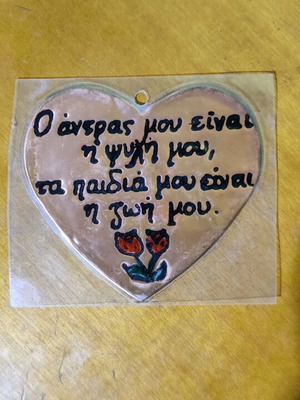 Ο άντρας μου είναι
η ψυχή μου,
τα παιδιά μου είναι
η ζωή μου.